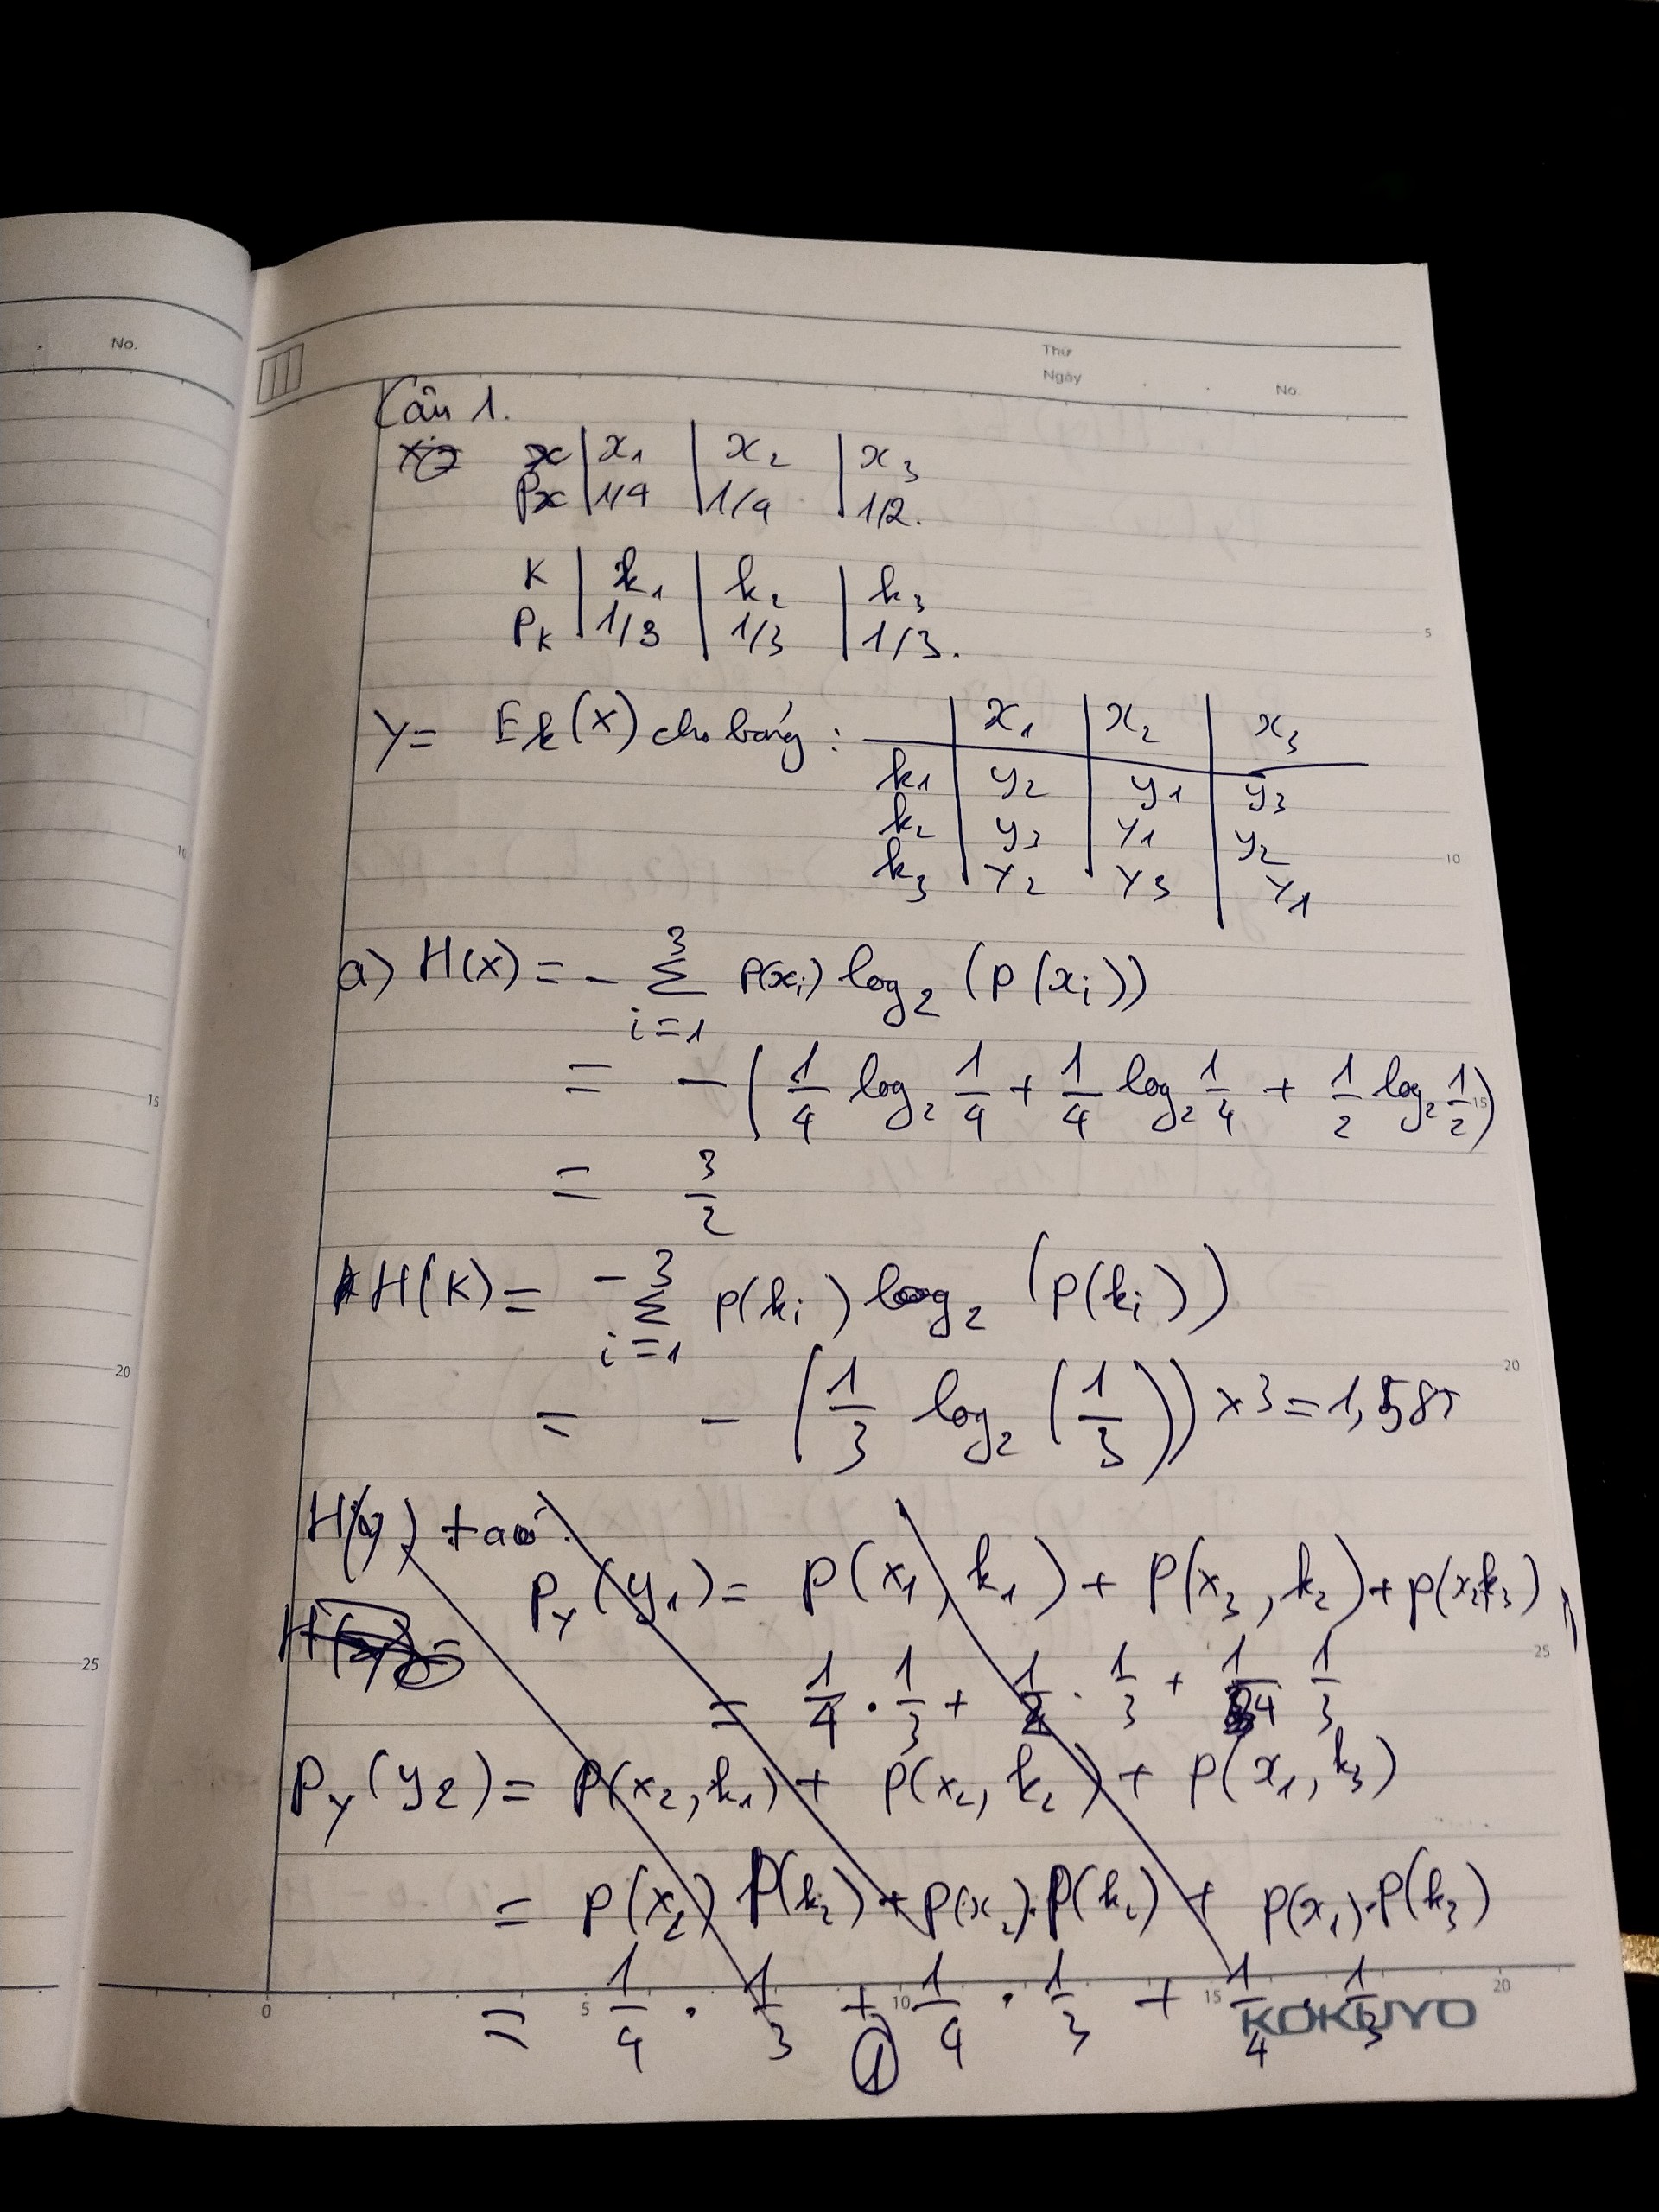 No.
Thứ
Ngày . . No.
Câu 1.
x | x₁ | x₂ | x₃
Px | 1/4 | 1/4 | 1/2.
K | k₁ | k₂ | k₃
PK | 1/3 | 1/3 | 1/3.
Y = Ek(x) cho bảng : | x₁ | x₂ | x₃
k₁ | y₂ | y₁ | y₃
k₂ | y₃ | Y₁ | y₂
k₃ | Y₂ | Y₃ | Y₁
a) H(x) = - 3 Σ i=1 P(xi) log₂ (p(xi))
= - (1/4 log₂ 1/4 + 1/4 log₂ 1/4 + 1/2 log₂ 1/2)
= 3/2
H(K) = - 3 Σ i=1 p(ki) log₂ (p(ki))
= - (1/3 log₂ (1/3)) x 3 = 1,585
H(y) ta có:
PY(y₁) = P(x₁, k₁) + P(x₃, k₂) + p(x₂k₃)
= 1/4 . 1/3 + 1/2 . 1/3 + 1/4 1/3
PY(y₂) = P(x₂, k₁) + P(x₂, k₂) + P(x₁, k₃)
= P(x₂) P(k₂) + P(x₂).P(k₂) + P(x₁).P(k₃)
= 1/4 . 1/3 + 1/4 . 1/3 + 1/4 . 1/3
0 5 10 15 20
KOKUYO
1
5
10
15
20
25
10
15
20
25